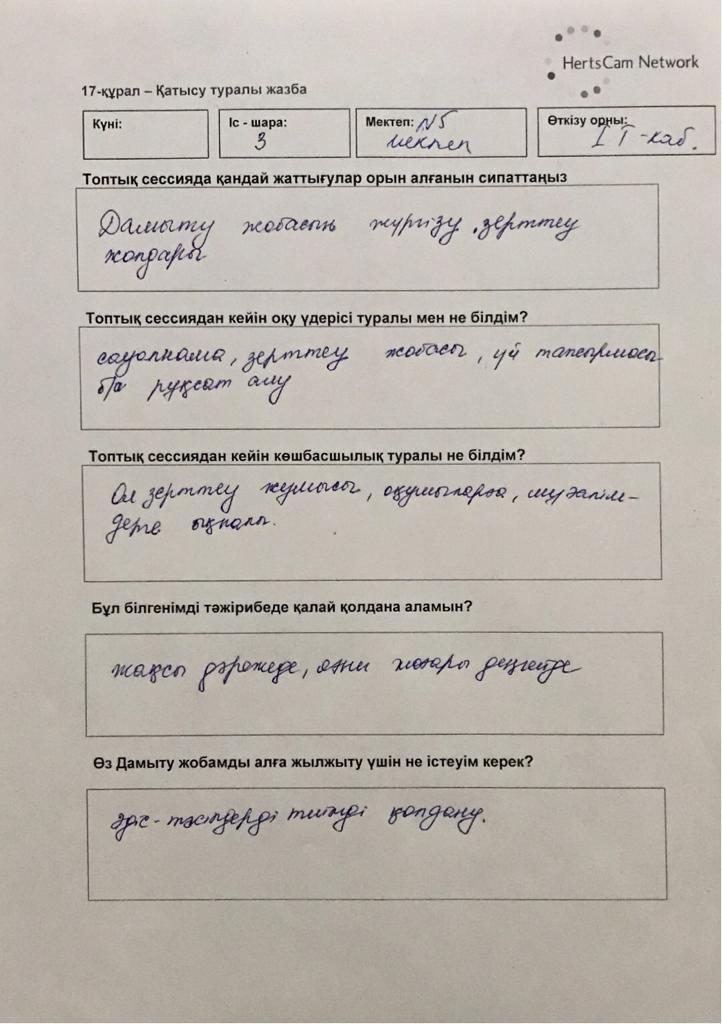 HertsCam Network
17-құрал – Қатысу туралы жазба
Күні:
Іс - шара:
3
Мектеп: N5
мектеп
Өткізу орны:
IT-каб.
Топтық сессияда қандай жаттығулар орын алғанын сипаттаңыз
Дамыту жобасын жүргізу, зерттеу
жолдары
Топтық сессиядан кейін оқу үдерісі туралы мен не білдім?
сауалнама, зерттеу жобасы, үй тапсырмасы
б/а рұқсат алу
Топтық сессиядан кейін көшбасшылық туралы не білдім?
Ол зерттеу жұмысы, оқушыларға, мұғалім-
дерге ықпалы.
Бұл білгенімді тәжірибеде қалай қолдана аламын?
жақсы дәрежеде, яғни жоғары деңгейде
Өз Дамыту жобамды алға жылжыту үшін не істеуім керек?
әдіс-тәсілдерді тиімді қолдану.